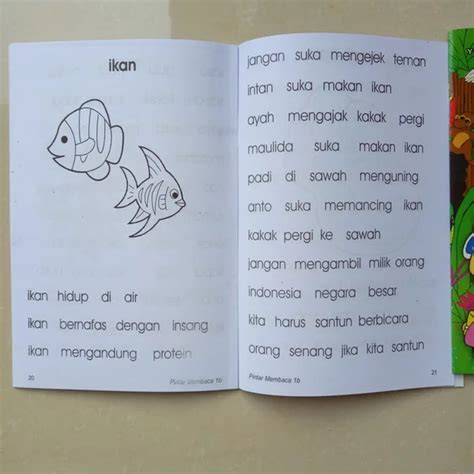 ikan
ikan hidup di air
ikan bernafas dengan insang
ikan mengandung protein
20
Pintar Membaca 1b
jangan suka mengejek teman
intan suka makan ikan
ayah mengajak kakak pergi
maulida suka makan ikan
padi di sawah menguning
anto suka memancing ikan
kakak pergi ke sawah
jangan mengambil milik orang
indonesia negara besar
kita harus santun berbicara
orang senang jika kita santun
Pintar Membaca 1b
21